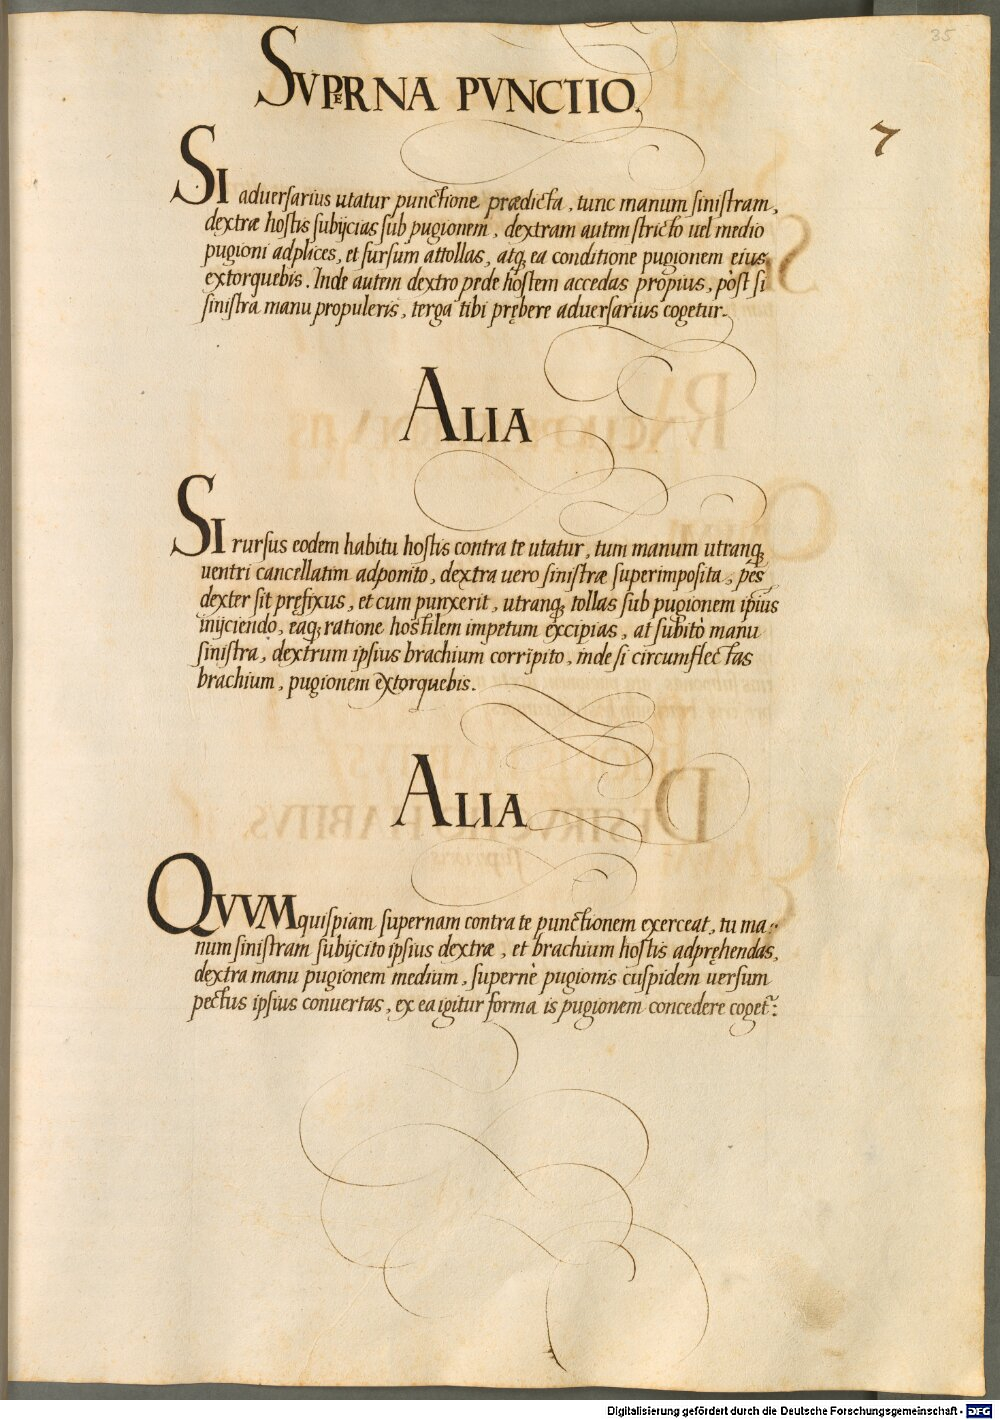 35
SVPERNA PVNCTIO.
7
SI aduerſarius utatur punctione prædicta, tunc manum ſiniſtram,
dextræ hoſtis ſubijcias ſub pugionem, dextram autem ſtricto uel medio
pugioni adplices, et ſurſum attollas, atq; ea conditione pugionem eius
extorquebis. Inde autem dextro pede hoſtem accedas propius, pòſt ſi
ſiniſtra manu propuleris, terga tibi prębere aduerſarius cogetur.
ALIA
SI rurſus eodem habitu hoſtis contra te utatur, tum manum utranq;
uentri cancellatim adponito, dextra uero ſiniſtræ ſuperimpoſita, pes
dexter ſit pręfixus, et cum punxerit, utranq; tollas ſub pugionem ipſius
inijciendo, eaq; ratione hoſtilem impetum excipias, at ſubitò manu
ſiniſtra, dextrum ipſius brachium corripito, inde ſi circumflectas
brachium, pugionem extorquebis.
ALIA
QVVM quiſpiam ſupernam contra te punctionem exerceat, tu ma:
num ſiniſtram ſubijcito ipſius dextræ, et brachium hoſtis adpręhendas,
dextra manu pugionem medium, ſupernè pugionis cuſpidem uerſum
pectus ipſius conuertas, ex ea igitur forma is pugionem concedere coget~:
Digitalisierung gefördert durch die Deutsche Forschungsgemeinschaft - DFG